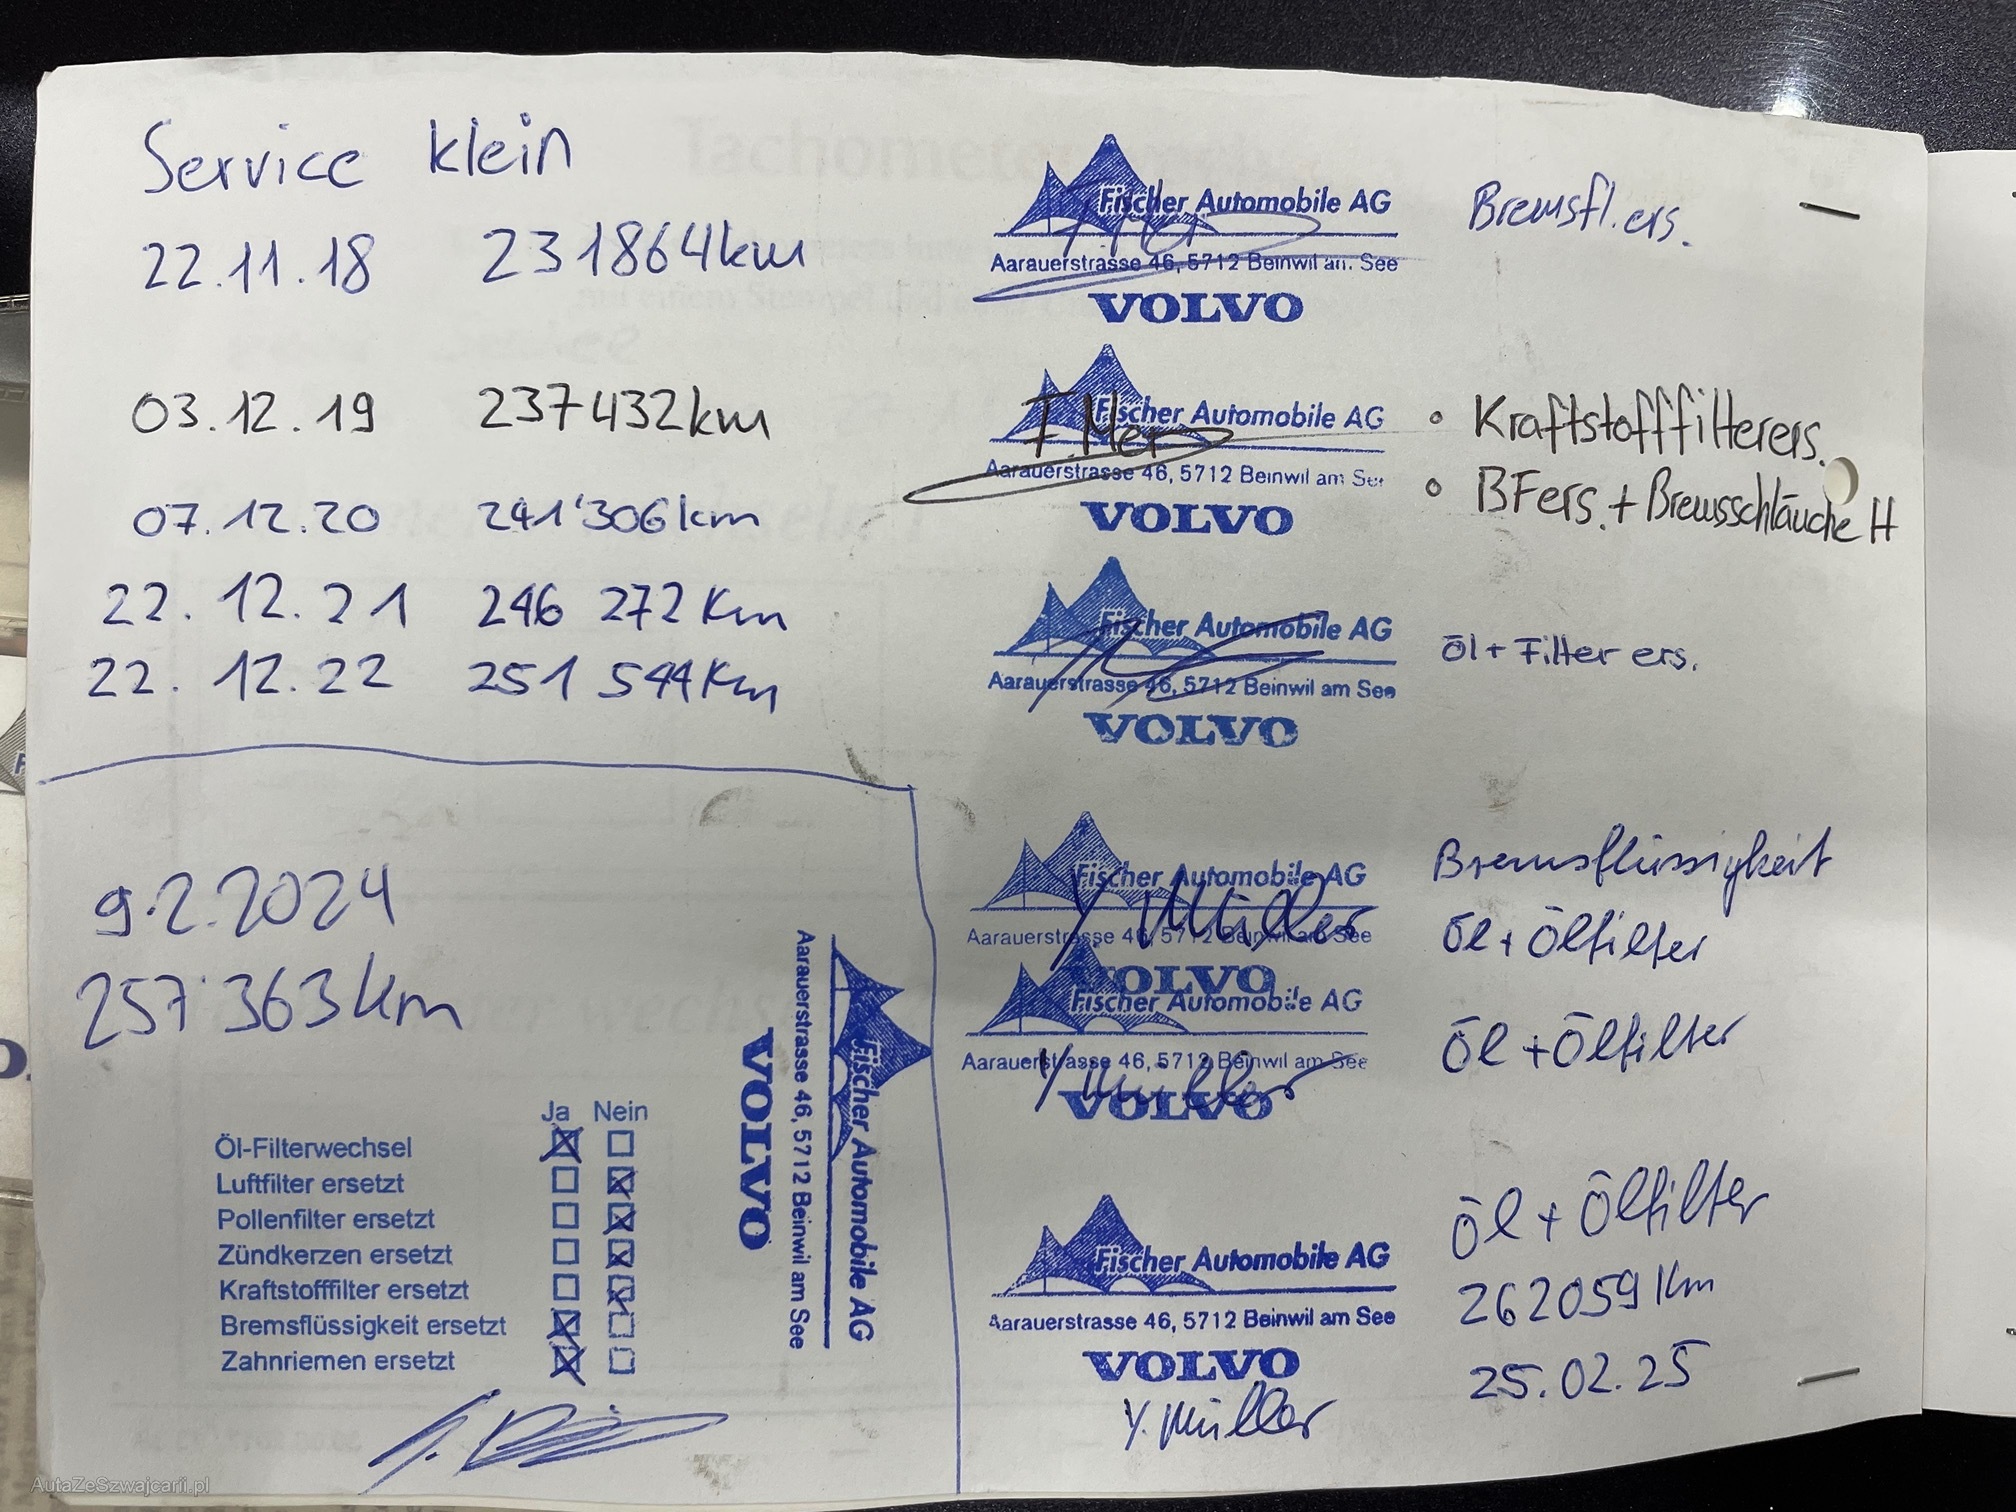 Service klein
22.11.18 231864km
Fischer Automobile AG
Aarauerstrasse 46, 5712 Beinwil am See
VOLVO
Bremsfl.ers.
03.12.19 237432km
Fischer Automobile AG
Aarauerstrasse 46, 5712 Beinwil am See
VOLVO
• Kraftstofffilterers.
• BFers. + Bremsschläuche H
07.12.20 241'306km
Fischer Automobile AG
Aarauerstrasse 46, 5712 Beinwil am See
VOLVO
Öl + Filter ers.
22.12.21 246 272 Km
Fischer Automobile AG
Aarauerstrasse 46, 5712 Beinwil am See
VOLVO
Y Müller
Bremsflüssigkeit
Öl + Ölfilter
22.12.22 251 544 Km
Fischer Automobile AG
Aarauerstrasse 46, 5712 Beinwil am See
VOLVO
Y Müller
Öl + Ölfilter
9.2.2024
257'363 km
Fischer Automobile AG
Aarauerstrasse 46, 5712 Beinwil am See
VOLVO
Ja Nein
Öl-Filterwechsel
Luftfilter ersetzt
Pollenfilter ersetzt
Zündkerzen ersetzt
Kraftstofffilter ersetzt
Bremsflüssigkeit ersetzt
Zahnriemen ersetzt
Fischer Automobile AG
Aarauerstrasse 46, 5712 Beinwil am See
VOLVO
Y. Müller
Öl + Ölfilter
262059 Km
25.02.25
AutaZeSzwajcarii.pl